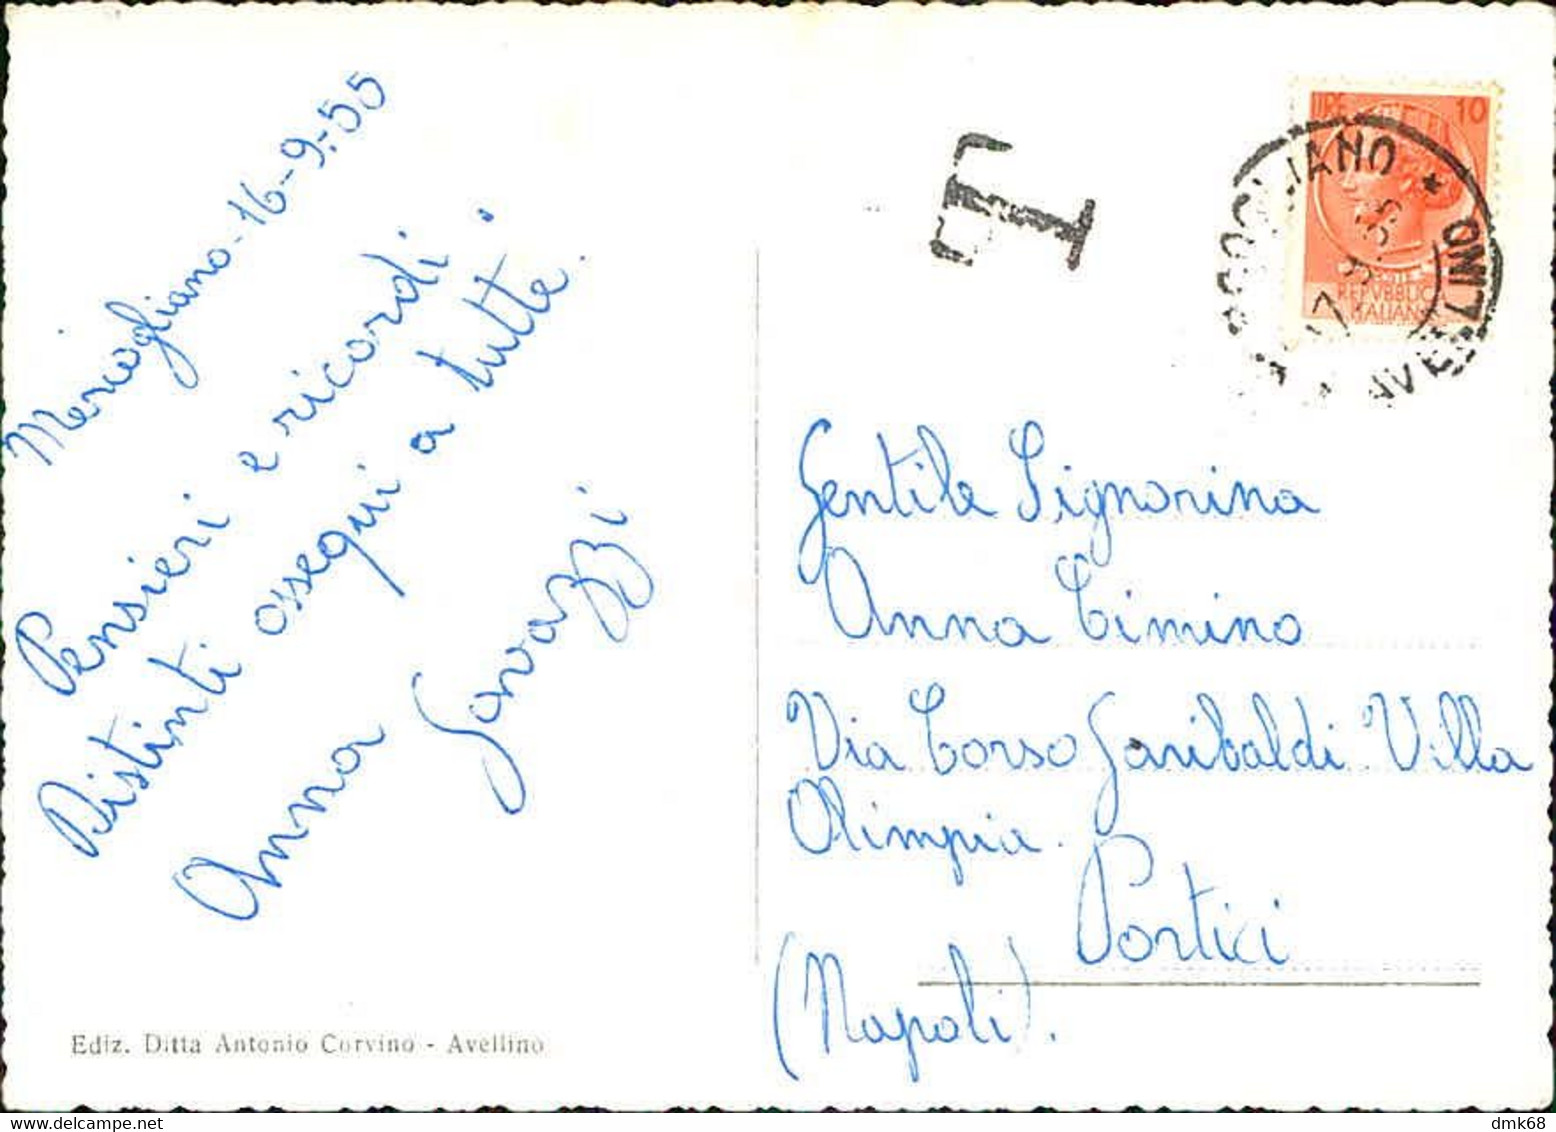 Mercogliano-16-9-55
Pensieri e ricordi.
Distinti ossequi a tutte.
Anna
Savazzi
Ediz. Ditta Antonio Corvino - Avellino
T
LIRE 10
REPVBBLICA
ITALIANA
MERCOGLIANO * AVELLINO
17.9.55
Gentile Signorina
Anna Cimino
Via Corso Garibaldi Villa
Olimpia.
Portici
(Napoli).
dmk68